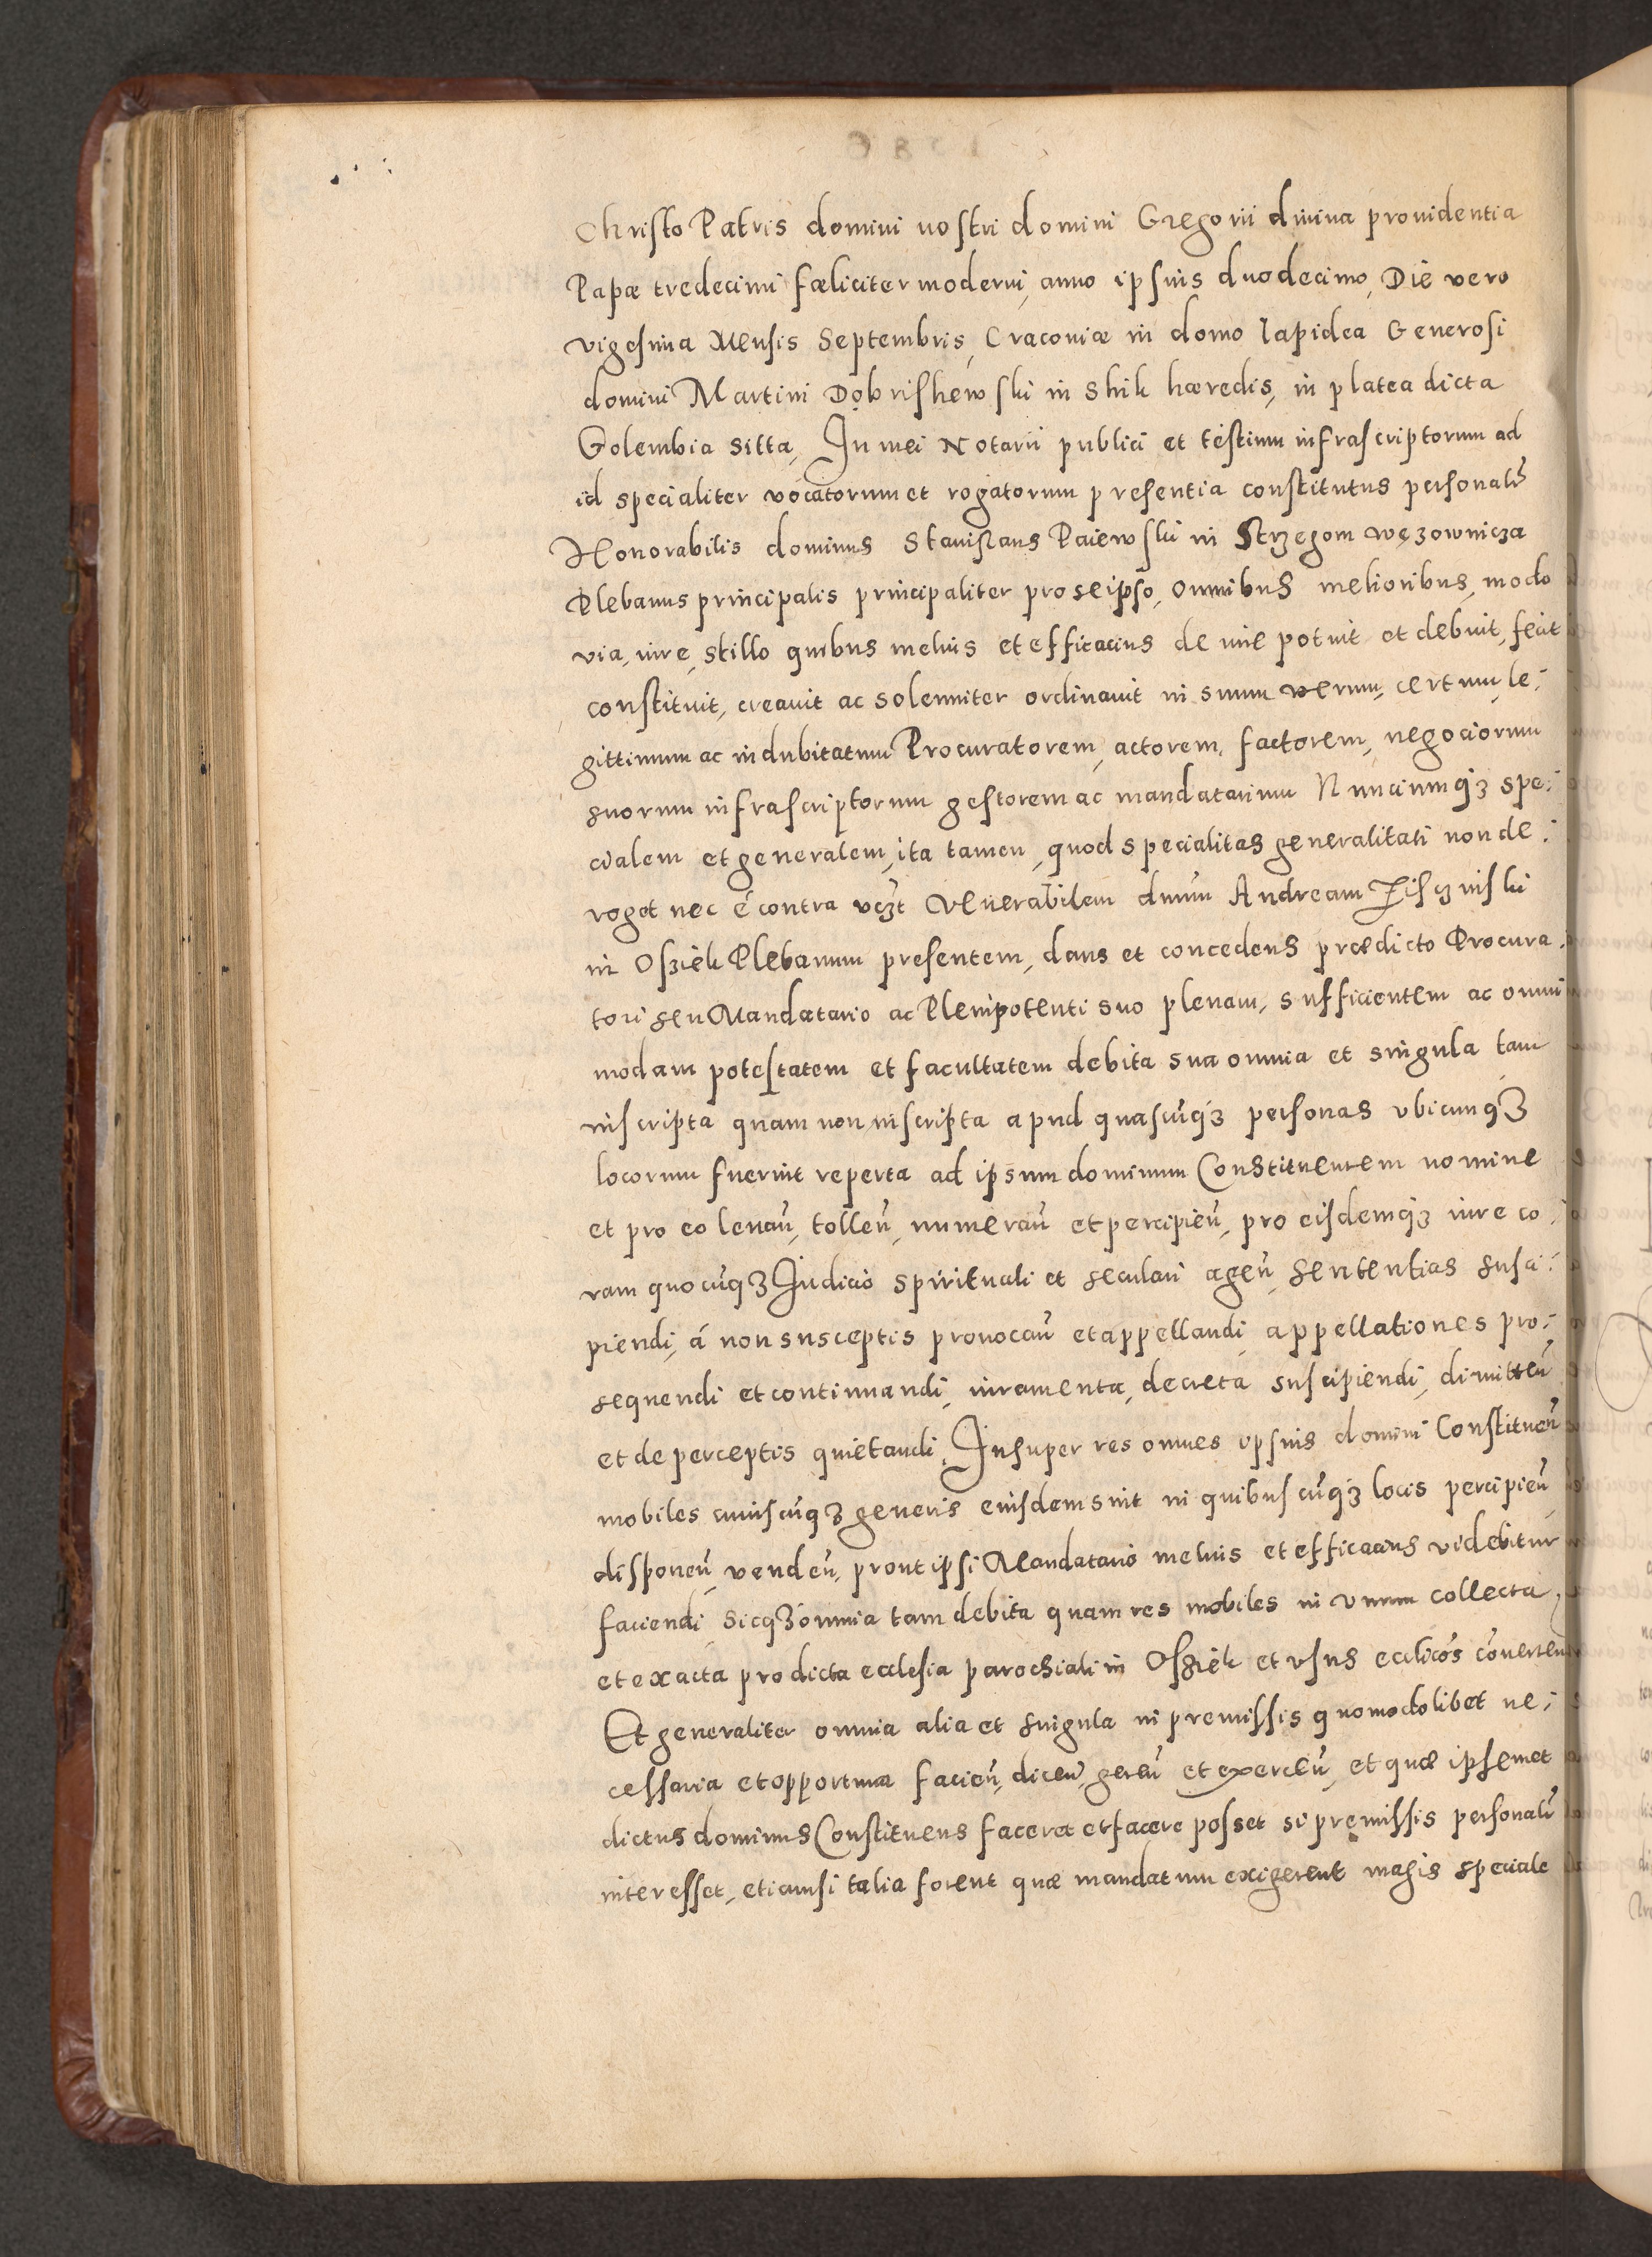 Christo Patris domini nostri domini Gregorii divina providentia
Papæ tredecimi fæliciter moderni, anno ipsius duodecimo, Die vero
vigesima Mensis Septembris, Cracoviæ in domo lapidea Generosi
domini Martini Dobrishewski in Shik hæredis, in platea dicta
Golembia sitta, In mei Notarii publici et testium infrascriptorum ad
id specialiter vocatorum et rogatorum presentia constitutus personalr̃
Honorabilis dominus Stanislaus Paiewski in Strzegom węzownicza
Plebanus principalis principaliter pro seipso, omnibus melioribus, modo
via, iure, stillo quibus melius et efficacius de iure potuit et debuit, fecit
constituit, creavit ac solenniter ordinavit in suum verum, certum, le:
gittimum ac indubitatum Procuratorem, actorem, factorem, negociorum
suorum infrascriptorum gestorem ac mandatarium Nunciumqȝ spe:
cialem et generalem, ita tamen, quod specialitas generalitati non de:
roget nec é contra vczt Venerabilem dnum Andream
in Osziek Plebanum presentem, dans et concedens prædicto Procura:
tori seu Mandatario ac Plenipotenti suo plenam, sufficientem ac omni
modam potestatem et facultatem debita sua omnia et singula tam
inscripta quam non inscripta apud quascūqȝ personas ubicunqȝ
locorum fuerint reperta ad ipsum dominum Constituentem nomine
et pro eo levan̄, tollen̄, numeran̄ et percipien̄, pro eisdemqȝ iure co:
ram quocūqȝ Judicio spirituali et seculari agen̄, sententias susci:
piendi, á non susceptis provocan̄ et appellandi, appellationes pro:
sequendi et continuandi, iuramenta, decreta suscipiendi, dimitten̄
et de perceptis quietandi. Insuper res omnes ipsius domini Constituen̄
mobiles cuiuscūqȝ generis eiusdem sint in quibuscūqȝ locis percipien̄
disponen̄, venden̄, prout ipsi Mandatario melius et efficacius videbitur
faciendi, sicqȝ omnia tam debita quam res mobiles in unum collecta,
et exacta pro dicta ecclesia parochiali in Osziek et usus ecclicos cōverten
Et generaliter omnia alia et singula in premissis quomodolibet ne:
cessaria et opportuna facien̄, dicen̄, geren̄ et exercen̄, et quæ ipsemet
dictus dominus Constituens faceret et facere posset si premissis personalr̃
interesset, etiamsi talia forent quæ mandatum exigerent magis speciale